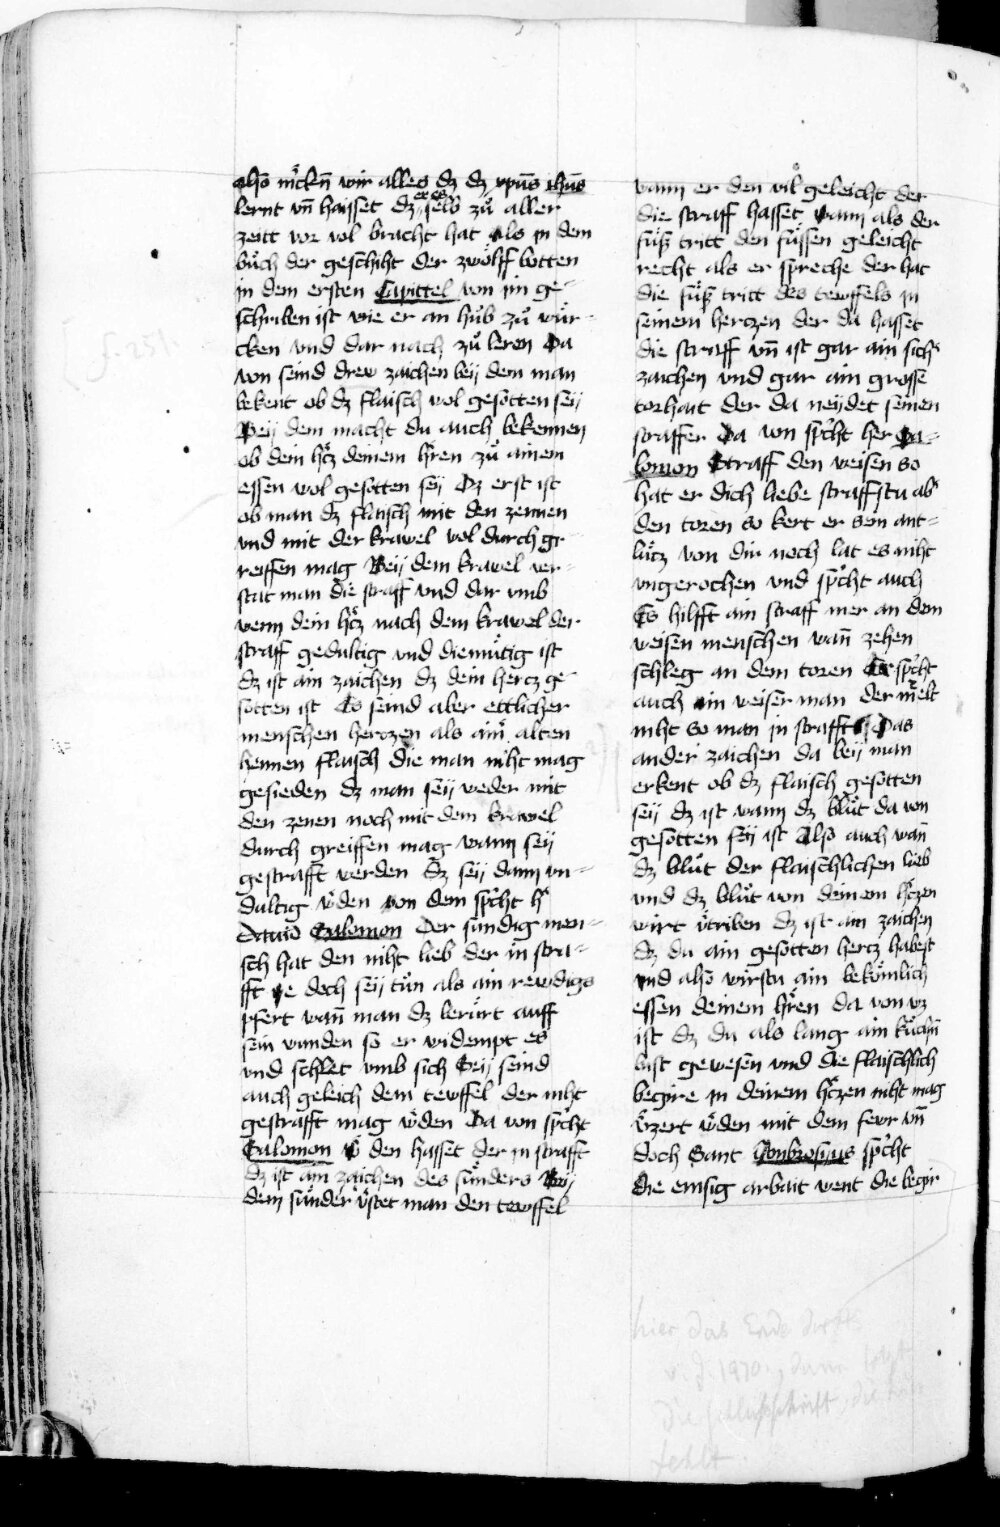 also mᵉckn̄ wir alles dz dz xpūs ihūs
lernt vn̄ haisset dz er es selb zů aller
zeitt vor vol bracht hat Als in dem
bůch der geschiht der zwölff botten
in dem ersten Capittel von im ge-
schriben ist wie er an hůb zů wür-
cken vnd dar nach zů leren Da
von seind drew zaichen beÿ dem man
bekent ob dz flaisch wol gesotten seÿ
Beÿ dem macht du auch bekennen
ob dem hᵉcz deinem hᵉren zů ainem
essen wol gesotten seÿ Dz erst ist
ob man dz flaisch mit den zennen
vnd mit der krawel wol durch gr
reiffen mag Beÿ dem krawel ver-
stat man die straff vnd dar vmb
wenn dein hᵉcz nach dem krawel der
straff gedultig vnd diemütig ist
dz ist ain zaichen dz dein hercz ge-
sotten ist Es seind aber ettlicher
menschen herczen als ainᵉ alten
hennen flaisch die man niht mag
gesieden dz man seÿ weder mit
den zenen noch mit dem krawel
durch greiffen mag wann seÿ
gestrafft werden dz seÿ dann vn-
dultig wᵉden von dem spᵉcht hᵉ
Dauid Salomon Der sündig men-
sch hat den niht lieb der in stra-
fft ye doch seÿ tůn als ain rewdigs
pfert wan̄ man dz berürt auff
sein wunden so er widempt es
vnd schlet vmb sich Seÿ seind
auch geleich dem tewffel der niht
gestrafft mag wᵉden Da von spᵉcht
Salomon wᵉ den hasset der in strafft
dz ist ain zaichen des sünders Beÿ
dem sünder vᵉstet man den tewffel
wann er den vil geleicht der
die straff hasset wann als der
fůsz tritt den füssen geleicht
recht als er spreche der hat
die fůsz tritt des tewffels in
seinem herczen der da hasset
die straff vn̄ ist gar ain sichᵉ
zaichen vnd gar ain grosse
torhait der da neÿdet seinen
straffer Da von spᵉcht her Sa-
lomon Straff den weisen so
hat er dich liebe straffstu abᵉ
den toren so kert er sein ant-
lütz von dir noch lat es niht
vngerochen vnd spᵉcht auch
Es hilfft ain straff mer an dem
weisen menschen wan̄ zehen
schleg an dem toren Er spᵉcht
auch ain weiser man der mᵉelt
niht so man in strafft Das
ander zaichen da beÿ man
erkent ob dz flaisch gesotten
seÿ dz ist wann dz blůt da von
gesotten seÿ ist Also auch wan̄
dz blůt der flaischlichen lieb
vnd dz blůt von deinem hᵉczen
wirt vᵉtriben dz ist ain zaichen
dz du ain gesotten hercz habest
vnd also wirstu ain bekömlich
essen deinem hᵉren da von wz
ist dz du als lang ain küchin
bist gewesen vnd die flaischlich
begire in deinem hᵉczen niht mag
vᵉzert wᵉden mit dem fewr vn̄
doch Sant Ambrosius spᵉcht
die emsig arbait went die begir
f. 251.
hier das Ende
fehlt